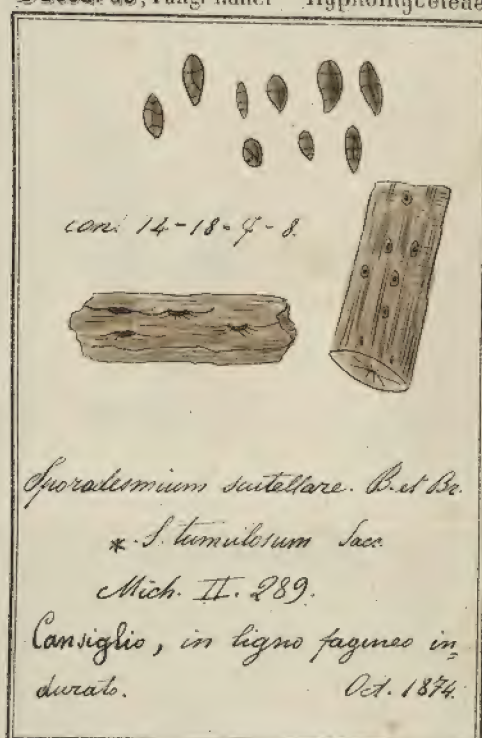 Hyphomyceteae
con: 14-18-7-8.
Sporadesmium scutellare. B. et Br.
* S. tumulosum Sacc.
Mich. II. 289.
Cansiglio, in ligno fagineo in=
durato. Oct. 1874.